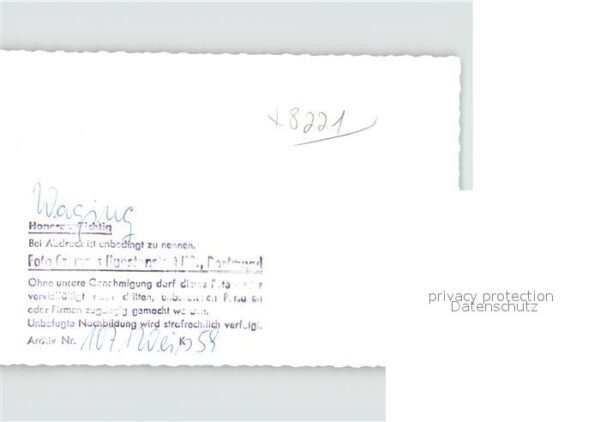 x8221
Waging
Honorarpflichtig
Bei Abdruck ist unbedingt zu nennen.
Foto Dortmund
Ohne unsere Genehmigung darf dieses Foto weder
vervielfältigt noch dritten, Personen
oder Firmen zugängig gemacht werden.
Unbefugte Nachbildung wird strafrechtlich verfolgt.
Archiv Nr. 107.1 K 59
privacy protection
Datenschutz